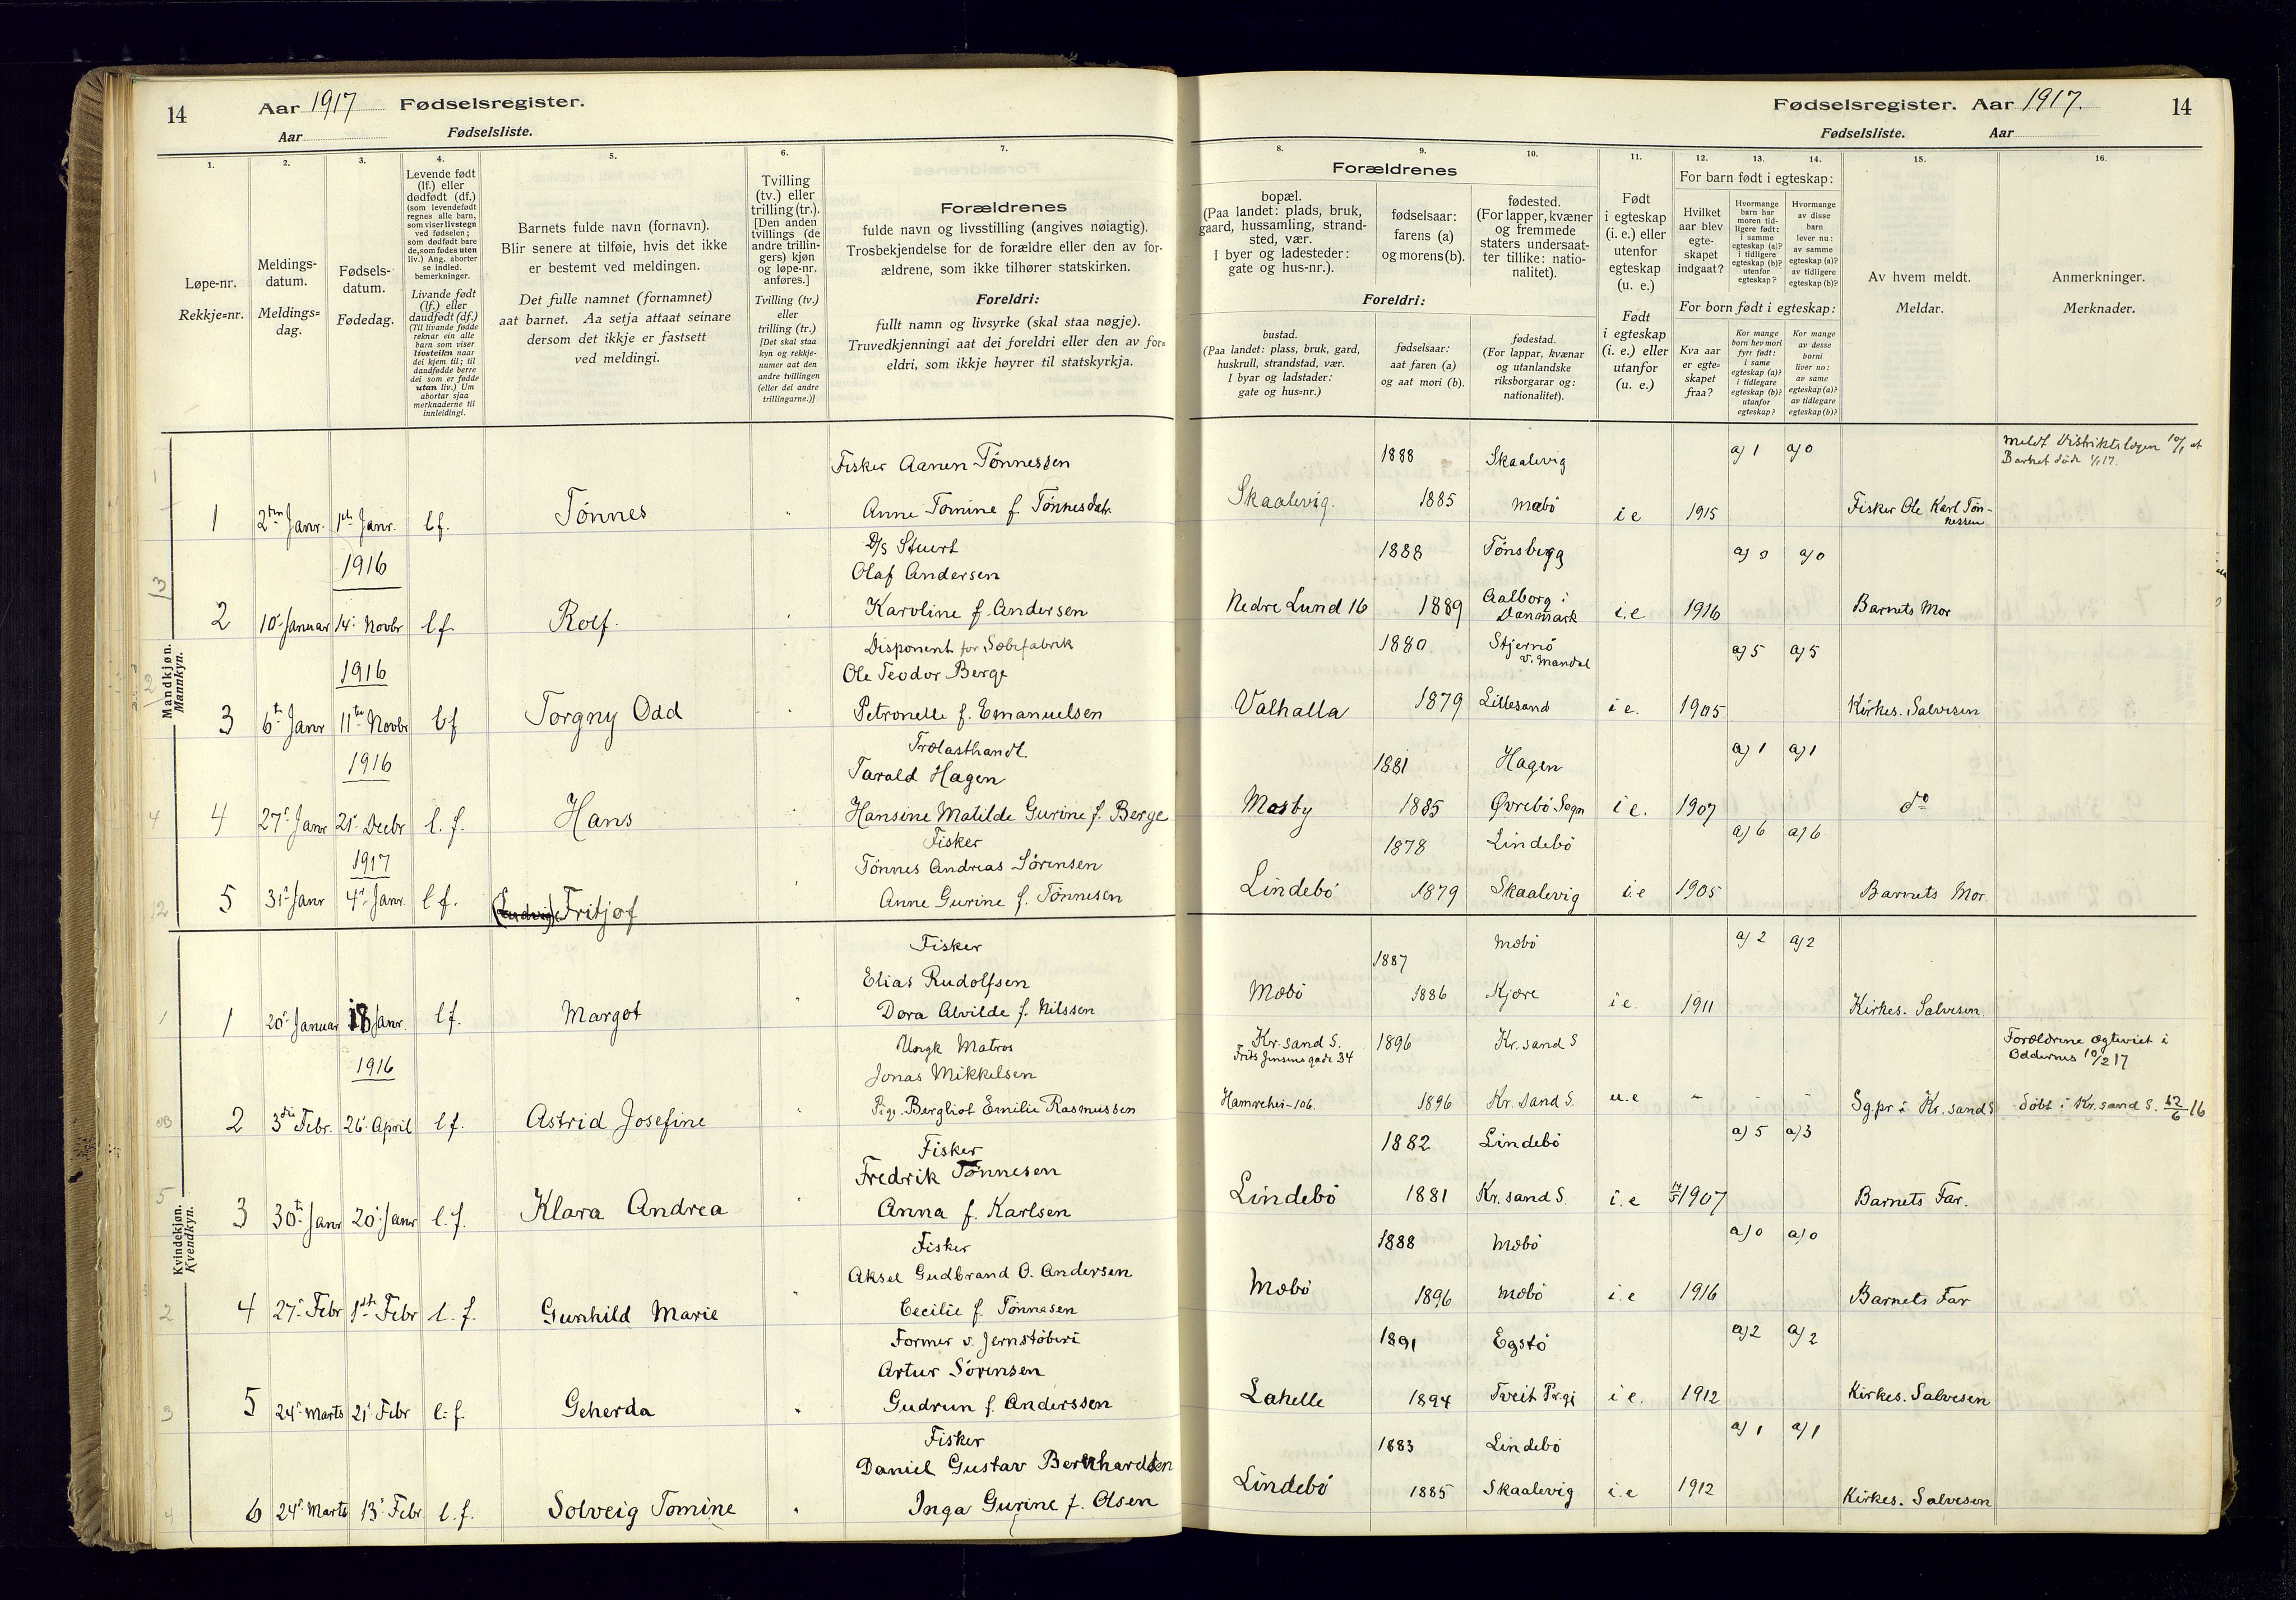 14
Aar 1917 Fødselsregister.
Aar
Fødselsliste.
1.
Løpe-nr.
Rekkje=nr.
2.
Meldings-
datum.
Meldings=
dag.
3.
Fødsels-
datum.
Fødedag.
4.
Levende født
(lf.) eller
dødfødt (df.)
(som levendefødt
regnes alle barn,
som viser livstegn
ved fødselen;
som dødfødt bare
de, som fødes uten
liv.) Ang. aborter
se indled.
bemerkninger.
Livande født
(lf.) eller
daudfødt (df.)
(Til livande fødde
reknar ein alle
barn som viser
livsteikn naar
dei kjem til; til
daudfødde berre
dei som er fødde
utan liv.) Um
abortar sjaa
merknaderne til
innleidingi.
5.
Barnets fulde navn (fornavn).
Blir senere at tilføie, hvis det ikke
er bestemt ved meldingen.
Det fulle namnet (fornamnet)
aat barnet. Aa setja attaat seinare
dersom det ikkje er fastsett
ved meldingi.
6.
Tvilling
(tv.) eller
trilling (tr.).
[Den anden
tvillings (de
andre trillin-
gers) kjøn
og løpe-nr.
anføres.]
Tvilling (tv.)
eller
trilling (tr.)
[Det skal staa
kyn og rekkje-
numer aat den
andre tvillingen
(eller dei andre
trillingarne.)]
7.
Forældrenes
fulde navn og livsstilling (angives nøiagtig).
Trosbekjendelse for de forældre eller den av for-
ældrene, som ikke tilhører statskirken.
Foreldri:
fullt namn og livsyrke (skal staa nøgje).
Truvedkjenningi aat dei foreldri eller den av for=
eldri, som ikkje høyrer til statskyrkja.
Mandkjøn.
Mannkyn.
Fisker Aanen Tønnessen
1 2den Janr. 1ste Janr. lf. Tønnes Anne Tomine f. Tønnesdatr.
1916
D/s Stuert
Olaf Andersen
2 10. Januar 14. Novbr lf. Rolf. Karoline f. Andersen
1916
Disponent for Sæbefabrik
Ole Teodor Berge
3 6te Janr 11te Novbr lf Torgny Odd Petronelle f. Emanuelsen
1916
Trælasthandl.
Tarald Hagen
4 27. Janr 21. Decbr l. f. Hans Hansine Matilde Gurine f. Berge
1917
Fisker
Tønnes Andreas Sørensen
5 31. Janr 4. Janr. l f. (Ludvig) Fritjof Anne Gurine f. Tønnesen
Kvindekjøn.
Kvendkyn.
Fisker
Elias Rudolfsen
1 20. Januar 18 Janr. lf. Margot Dora Alvilde f. Nilssen
1916
Ungk Matros
Jonas Mikkelsen
2 3die Febr. 26. April lf. Astrid Josefine Pige. Bergliot Emilie Rasmussen
Fisker
Fredrik Tønnesen
3 30te Janr 20. Janr l. f. Klara Andrea Anna f. Karlsen
Fisker
Aksel Gudbrand O. Andersen
4 27. Febr 1ste Febr l. f. Gunhild Marie Cecilie f. Tønnesen
Former v. Jernstøberi
Artur Sørensen
5 24. Marts 21. Febr l. f. Geherda Gudrun f. Anderssen
Fisker
Daniel Gustav Bernhardsen
6 24. Marts 13. Febr. l. f. Solveig Tomine Inga Gurine f. Olsen
Fødselsregister. Aar 1917. 14
Fødselsliste. Aar
8.
Forældrenes
bopæl.
(Paa landet: plads, bruk,
gaard, hussamling, strand-
sted, vær.
I byer og ladesteder:
gate og hus-nr.).
Foreldri:
bustad.
(Paa landet: plass, bruk, gard,
huskrull, strandstad, vær.
I byar og ladstader:
gate og hus=nr.)
9.
fødselsaar:
farens (a)
og morens (b).
fødselsaar:
aat faren (a)
og aat mori (b).
10.
fødested.
(For lapper, kvæner
og fremmede
staters undersaat-
ter tillike: natio-
nalitet).
fødestad.
(For lappar, kvænar
og utanlandske
riksborgarar og:
nationalitet).
11.
Født
i egteskap
(i. e.) eller
utenfor
egteskap
(u. e.)
Født
i egteskap
(i. e.) eller
utanfor
(u. e.)
12.
13.
14.
For barn født i egteskap:
Hvilket
aar blev
egte-
skapet
indgaat?
Hvormange
barn har
moren tid-
ligere født:
i samme
egteskap (a)?
i tidligere
egteskap (b)?
utenfor
egteskap?
Hvormange
av disse
barn
lever nu:
av samme
egteskap (a)?
av tidligere
egteskap (b)?
For born født i egteskap:
Kva aar
er egte=
skapet
fraa?
Kor mange
born hev mori
fyrr født:
i same
egteskap (a)?
i tidlegare
egteskap (b)?
utanfor
egteskap?
Kor mange
av desse
borni
liver no:
av same
egteskap (a)?
av tidlegare
egteskap (b)?
15.
Av hvem meldt.
Meldar.
16.
Anmerkninger.
Merknader.
1888 Skaalevig a) 1 a) 0 meldt Distriktslægen 10/1 at
Barnet døde 1/1 17.
Skaalevig. 1885 Mæbø i e 1915 Fisker Ole Karl Tøn-
nessen
1888 Tønsberg a) 0 a) 0
Nedre Lund 16 1889 Aalborg i
Danmark i. e 1916 Barnets Mor
1880 Stjernø
v. Mandal a) 5 a) 5
Valhalla 1879 Lillesand i e. 1905 Kirkes. Salvesen
1881 Hagen a) 1 a) 1
Mosby 1885 Øvrebø Sogn i e. 1907 do
1878 Lindebø a) 6 a) 6
Lindebø 1879 Skaalevig i.e 1905 Barnets Mor.
1887 Mæbø a) 2 a) 2
Mæbø 1886 Kjøre i e. 1911 Kirkes. Salvesen
Kr. sand S.
Frits Jensens gade 34 1896 Kr. sand S Forældrene ægteviet i
Oddernes 10/2 17
Hamrehei-106. 1896 Kr. sand S. u. e - - - Sg.pr i Kr. sand S døbt i Kr. sand S. /6 16
1882 Lindebø a) 5 a) 3
Lindebø 1881 Kr. sand S. i. e 1907 Barnets Far.
1888 Mæbø a) 0 a) 0
Mæbø 1896 Mæbø i. e 1916 Barnets Far
1891 Egstø a) 2 a) 2
Lahelle 1894 Tveit Pr.gj i e. 1912 Kirkes. Salvesen
1883 Lindebø a) 1 a) 1
Lindebø 1885 Skaalevig i. e 1912 Kirkes. Salvesen